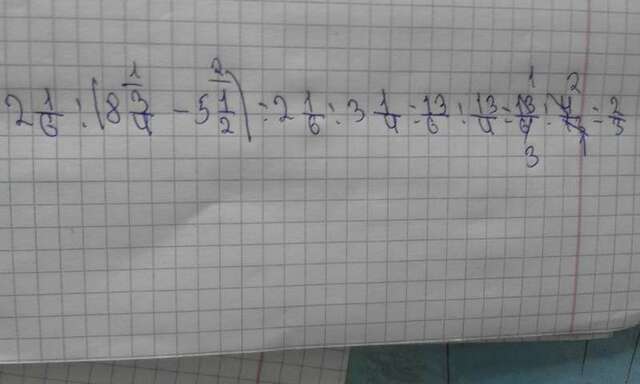 2 1/6 : (8 3/4 - 5 1/2) = 2 1/6 : 3 1/4 = 13/6 : 13/4 = 13/6 · 4/13 = 2/3